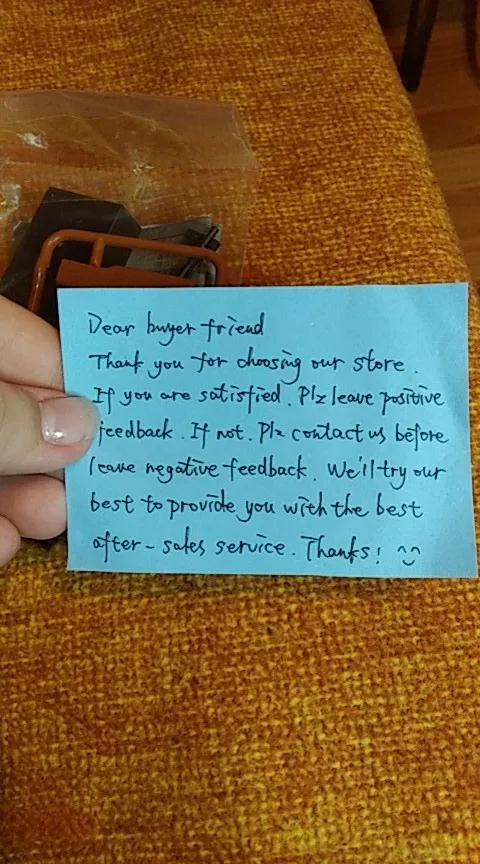 Dear buyer friend
Thank you for choosing our store.
If you are satisfied. Plz leave positive
feedback. If not. Plz contact us before
leave negative feedback. We'll try our
best to provide you with the best
after-sales service. Thanks! ^^